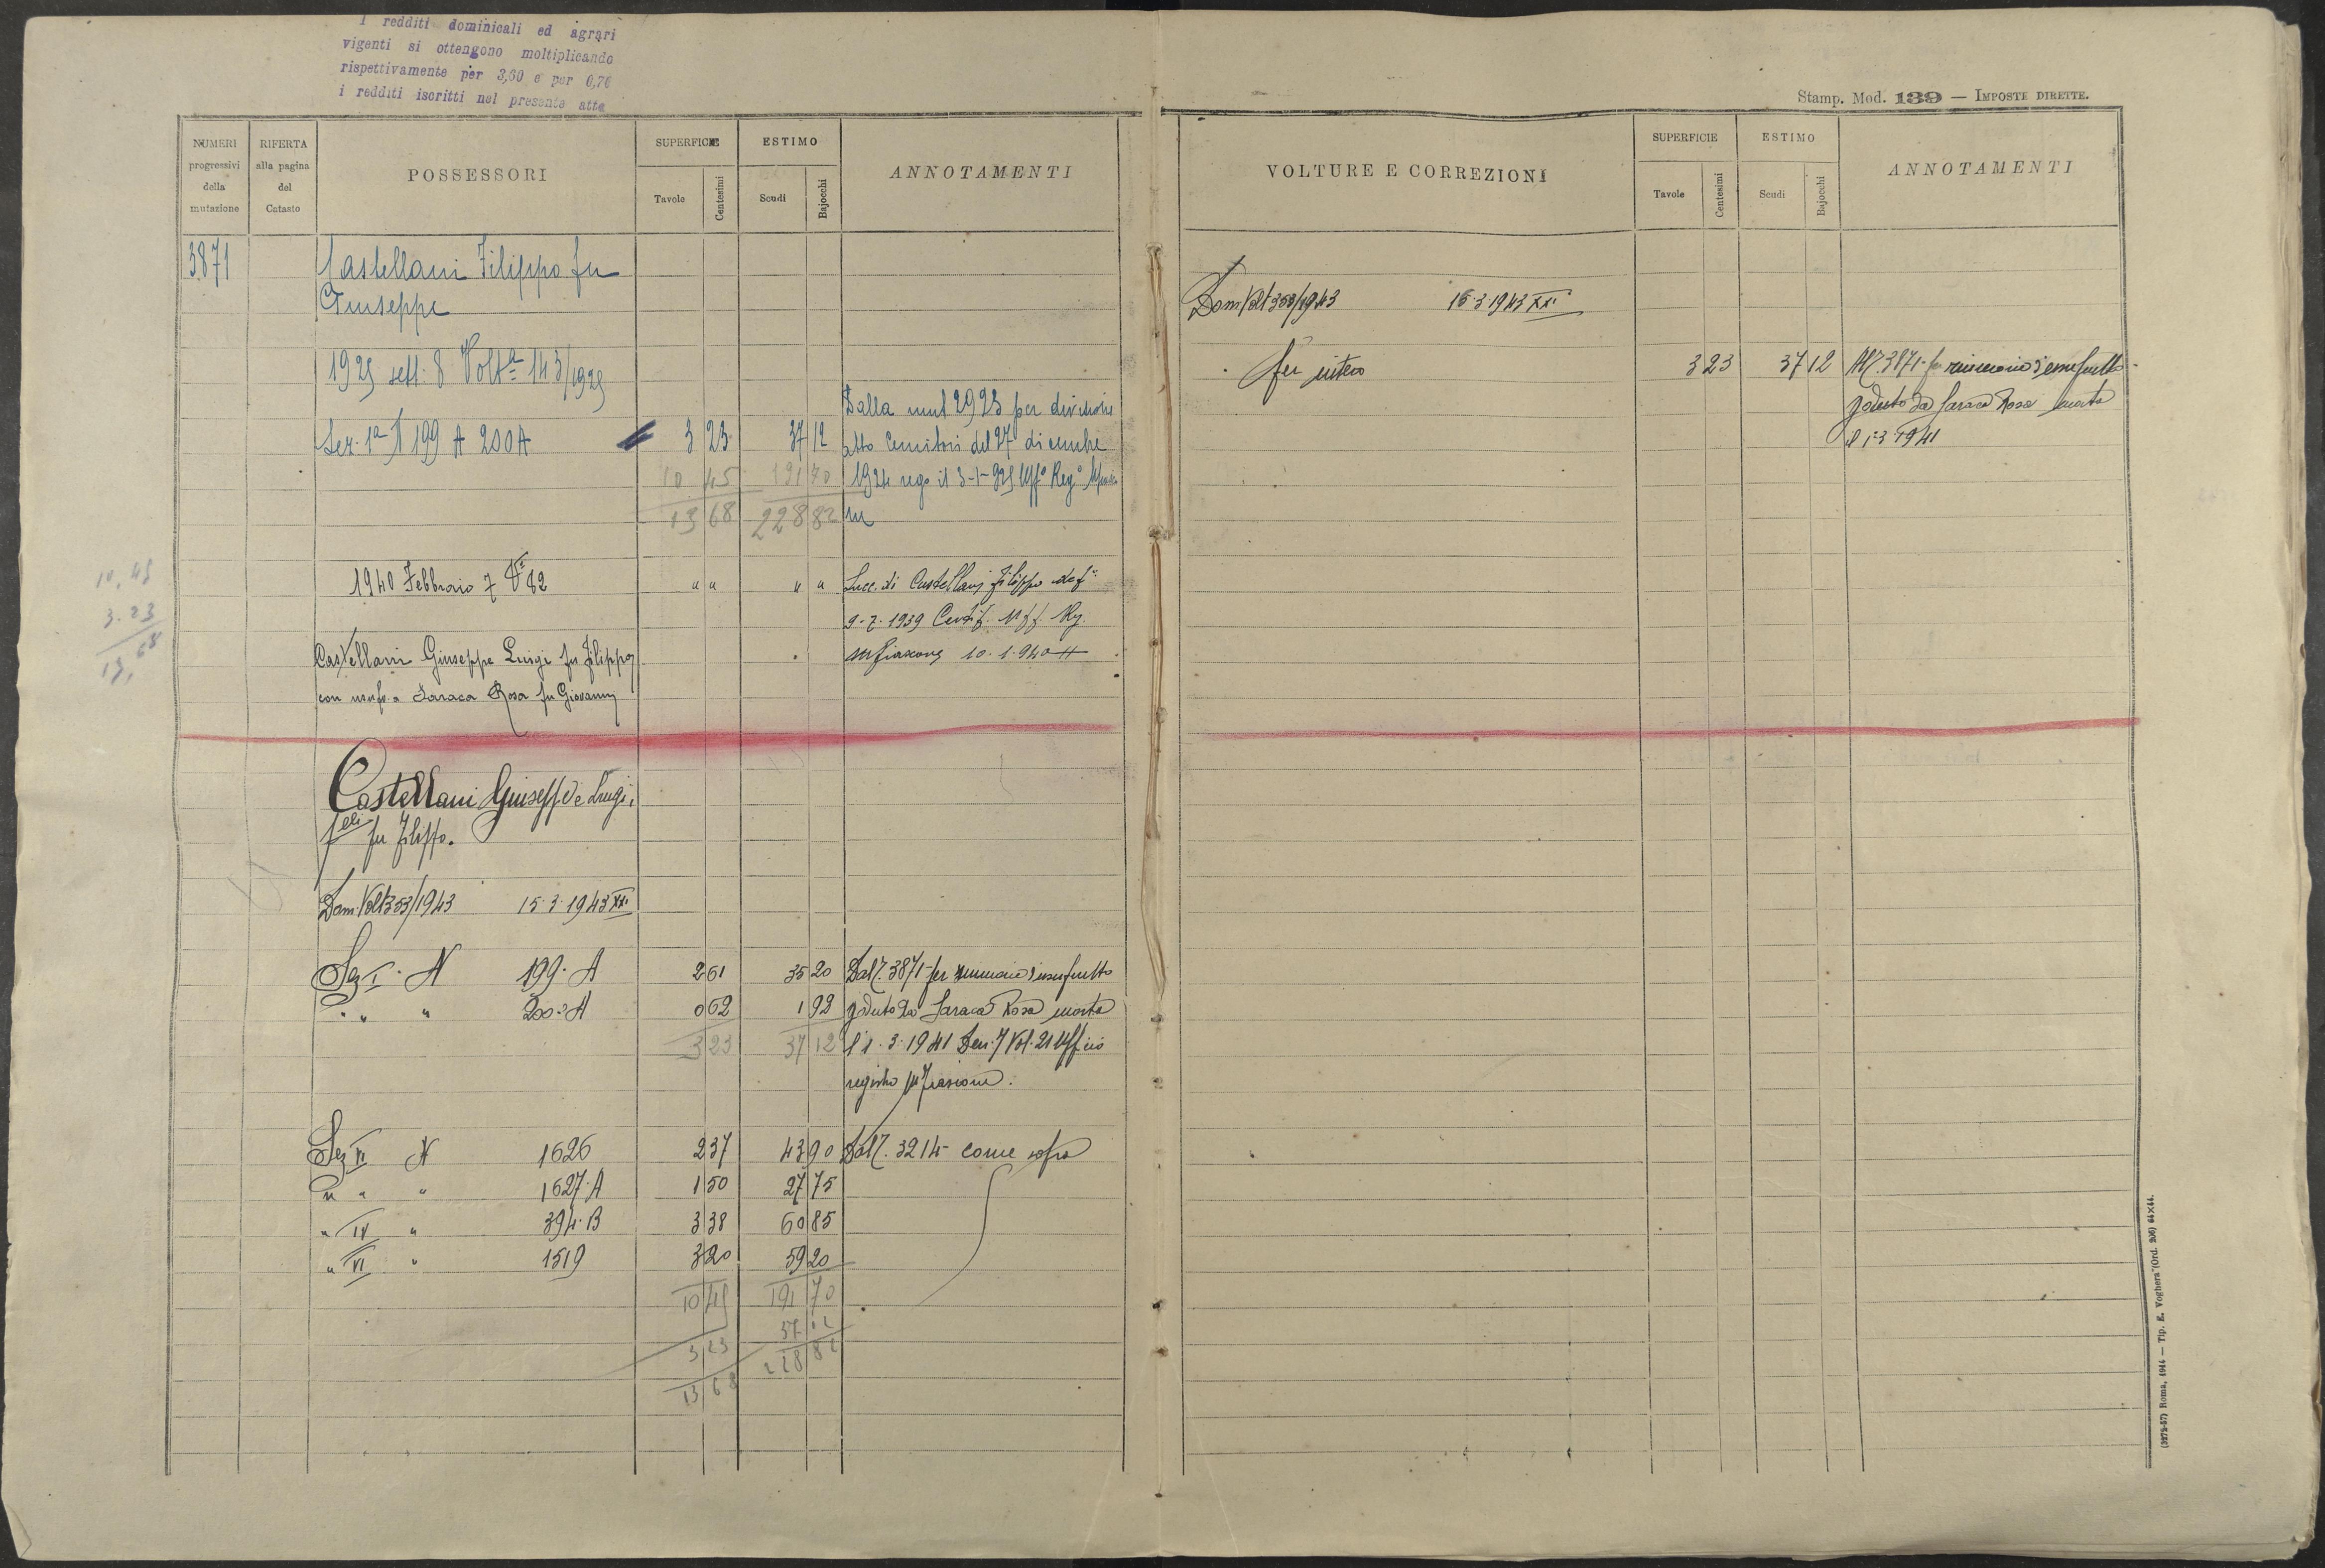 I redditi dominicali ed agrari
vigenti si ottengono moltiplicando
rispettivamente per 3,60 e per 0,76
i redditi iscritti nel presente atto
Stamp. Mod. 139 — IMPOSTE DIRETTE.
NUMERI progressivi della mutazione
RIFERTA alla pagina del Catasto
POSSESSORI
SUPERFICIE
Tavole Centesimi
ESTIMO
Scudi Bajocchi
ANNOTAMENTI
VOLTURE E CORREZIONI
SUPERFICIE
Tavole Centesimi
ESTIMO
Scudi Bajocchi
ANNOTAMENTI
3871 Castellani Filippo fu
Giuseppe
1925 sett. 8 Volta 143/1925
Dalla mut 2923 per divisione
Sez. 1a N 199 A 200A 3 23 37 12 atto del 27 dicembre
10 45 191 70 1924 rego il 3-1-925 Uffo Rego
13 68 228 82
10,45
3.23
13,68
1940 Febbraio 7 Va 82 " " " " Succ. di Castellani Filippo def
9-7-1939 Certif. Uff. Reg.
Castellani Giuseppe Luigi fu Filippo 10.1.940
con usuf. a Saraca Rosa fu Giovanni
Castellani Giuseppe Luigi
flli fu Filippo.
Dom. Volt 353/1943 15.3.1943 XXI
Sez I. N 199.A 2 61 35 20 Dal 3871 per riunione d'usufrutto
" " " 200.A 0 62 1 92 goduto da Saraca Rosa morta
3 23 37 12 l'1.3.1941 Den. 7 Vol. 21 Ufficio
registro Mfiascone.
Sez VI N 1626 2 37 43 90 Dal 3214 come sopra
" " " 1627.A 1 50 27 75
" IV " 394.B 3 38 60 85
" VI " 1519 3 20 59 20
10 45 191 70
3 23 37 12
13 68 228 82
Dom Volt 353/1943 15.3.1943 XXI
Per intero 3 23 37 12 Al 3871 per riunione d'usufrutto
goduto da Saraca Rosa morta
il 1-3-1941
(3272-57) Roma, 1914 — Tip. E. Voghera (Ord. 206) 44×44.